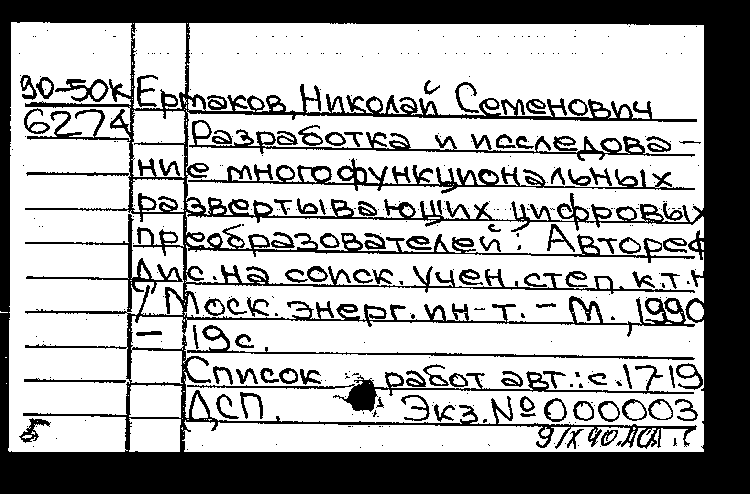 90-50к Ермаков, Николай Семенович
6274 Разработка и исследова-
ние многофункциональных
развертывающих цифровых
преобразователей: Автореф
дис. на соиск. учен. степ. к.т.н
/ Моск. энерг. ин-т. - М., 1990
- 19с.
Список работ авт.: с.17-19
ДСП. Экз.№000003
5